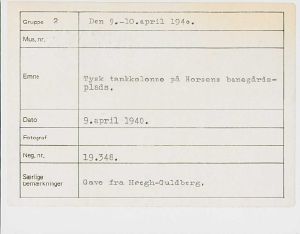 Gruppe 2 Den 9.-10.april 1940.
Mus. nr.
Emne Tysk tankkolonne på Horsens banegårds-
plads.
Dato 9.april 1940.
Fotograf
Neg. nr. 19.348.
Særlige
bemærkninger Gave fra Høegh-Guldberg.